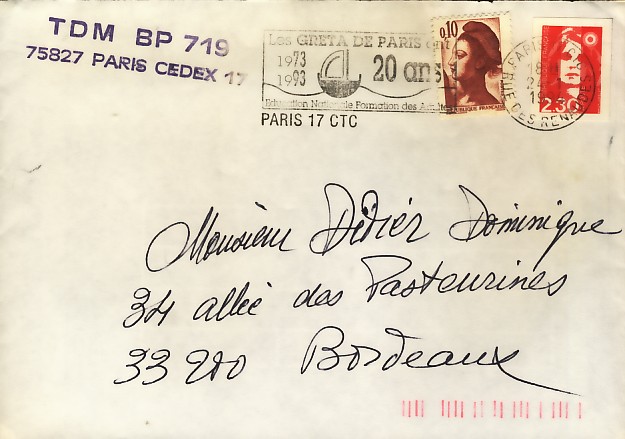 TDM BP 719
75827 PARIS CEDEX 17
Les GRETA DE PARIS ont
1973
1993
20 ans
Education Nationale Formation des Adultes
PARIS 17 CTC
0,10
REPUBLIQUE FRANCAISE
2,30
PARIS
18H
RUE DES RENAUDES
Monsieur Didier Dominique
34 allée des Pasteurines
33200 Bordeaux